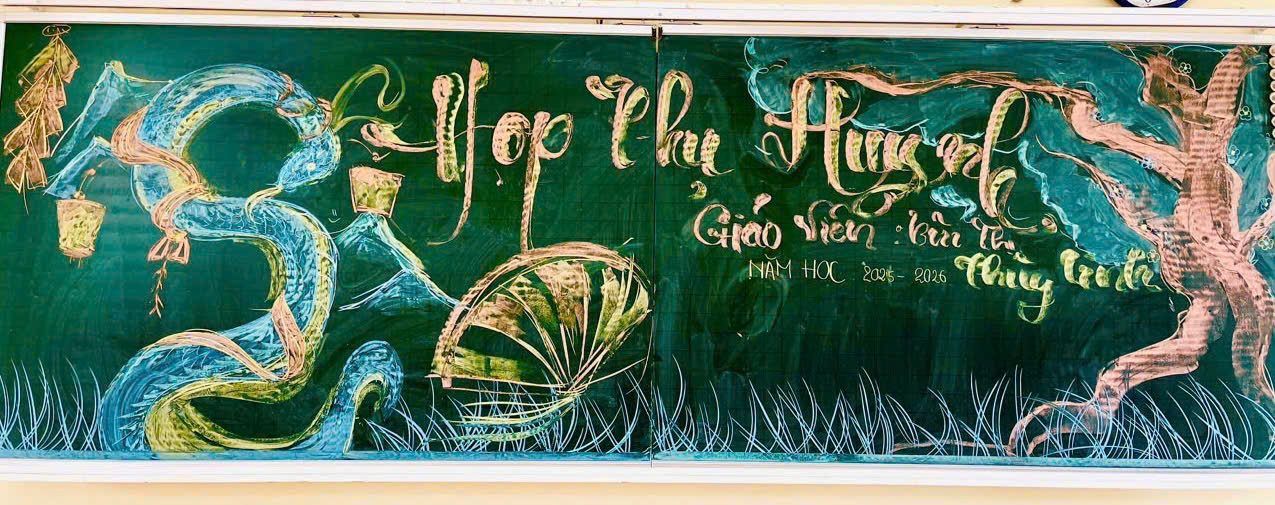 Họp Phụ Huynh
Giáo Viên : Bùi Thị
Thùy Linh
NĂM HỌC 2025 - 2026